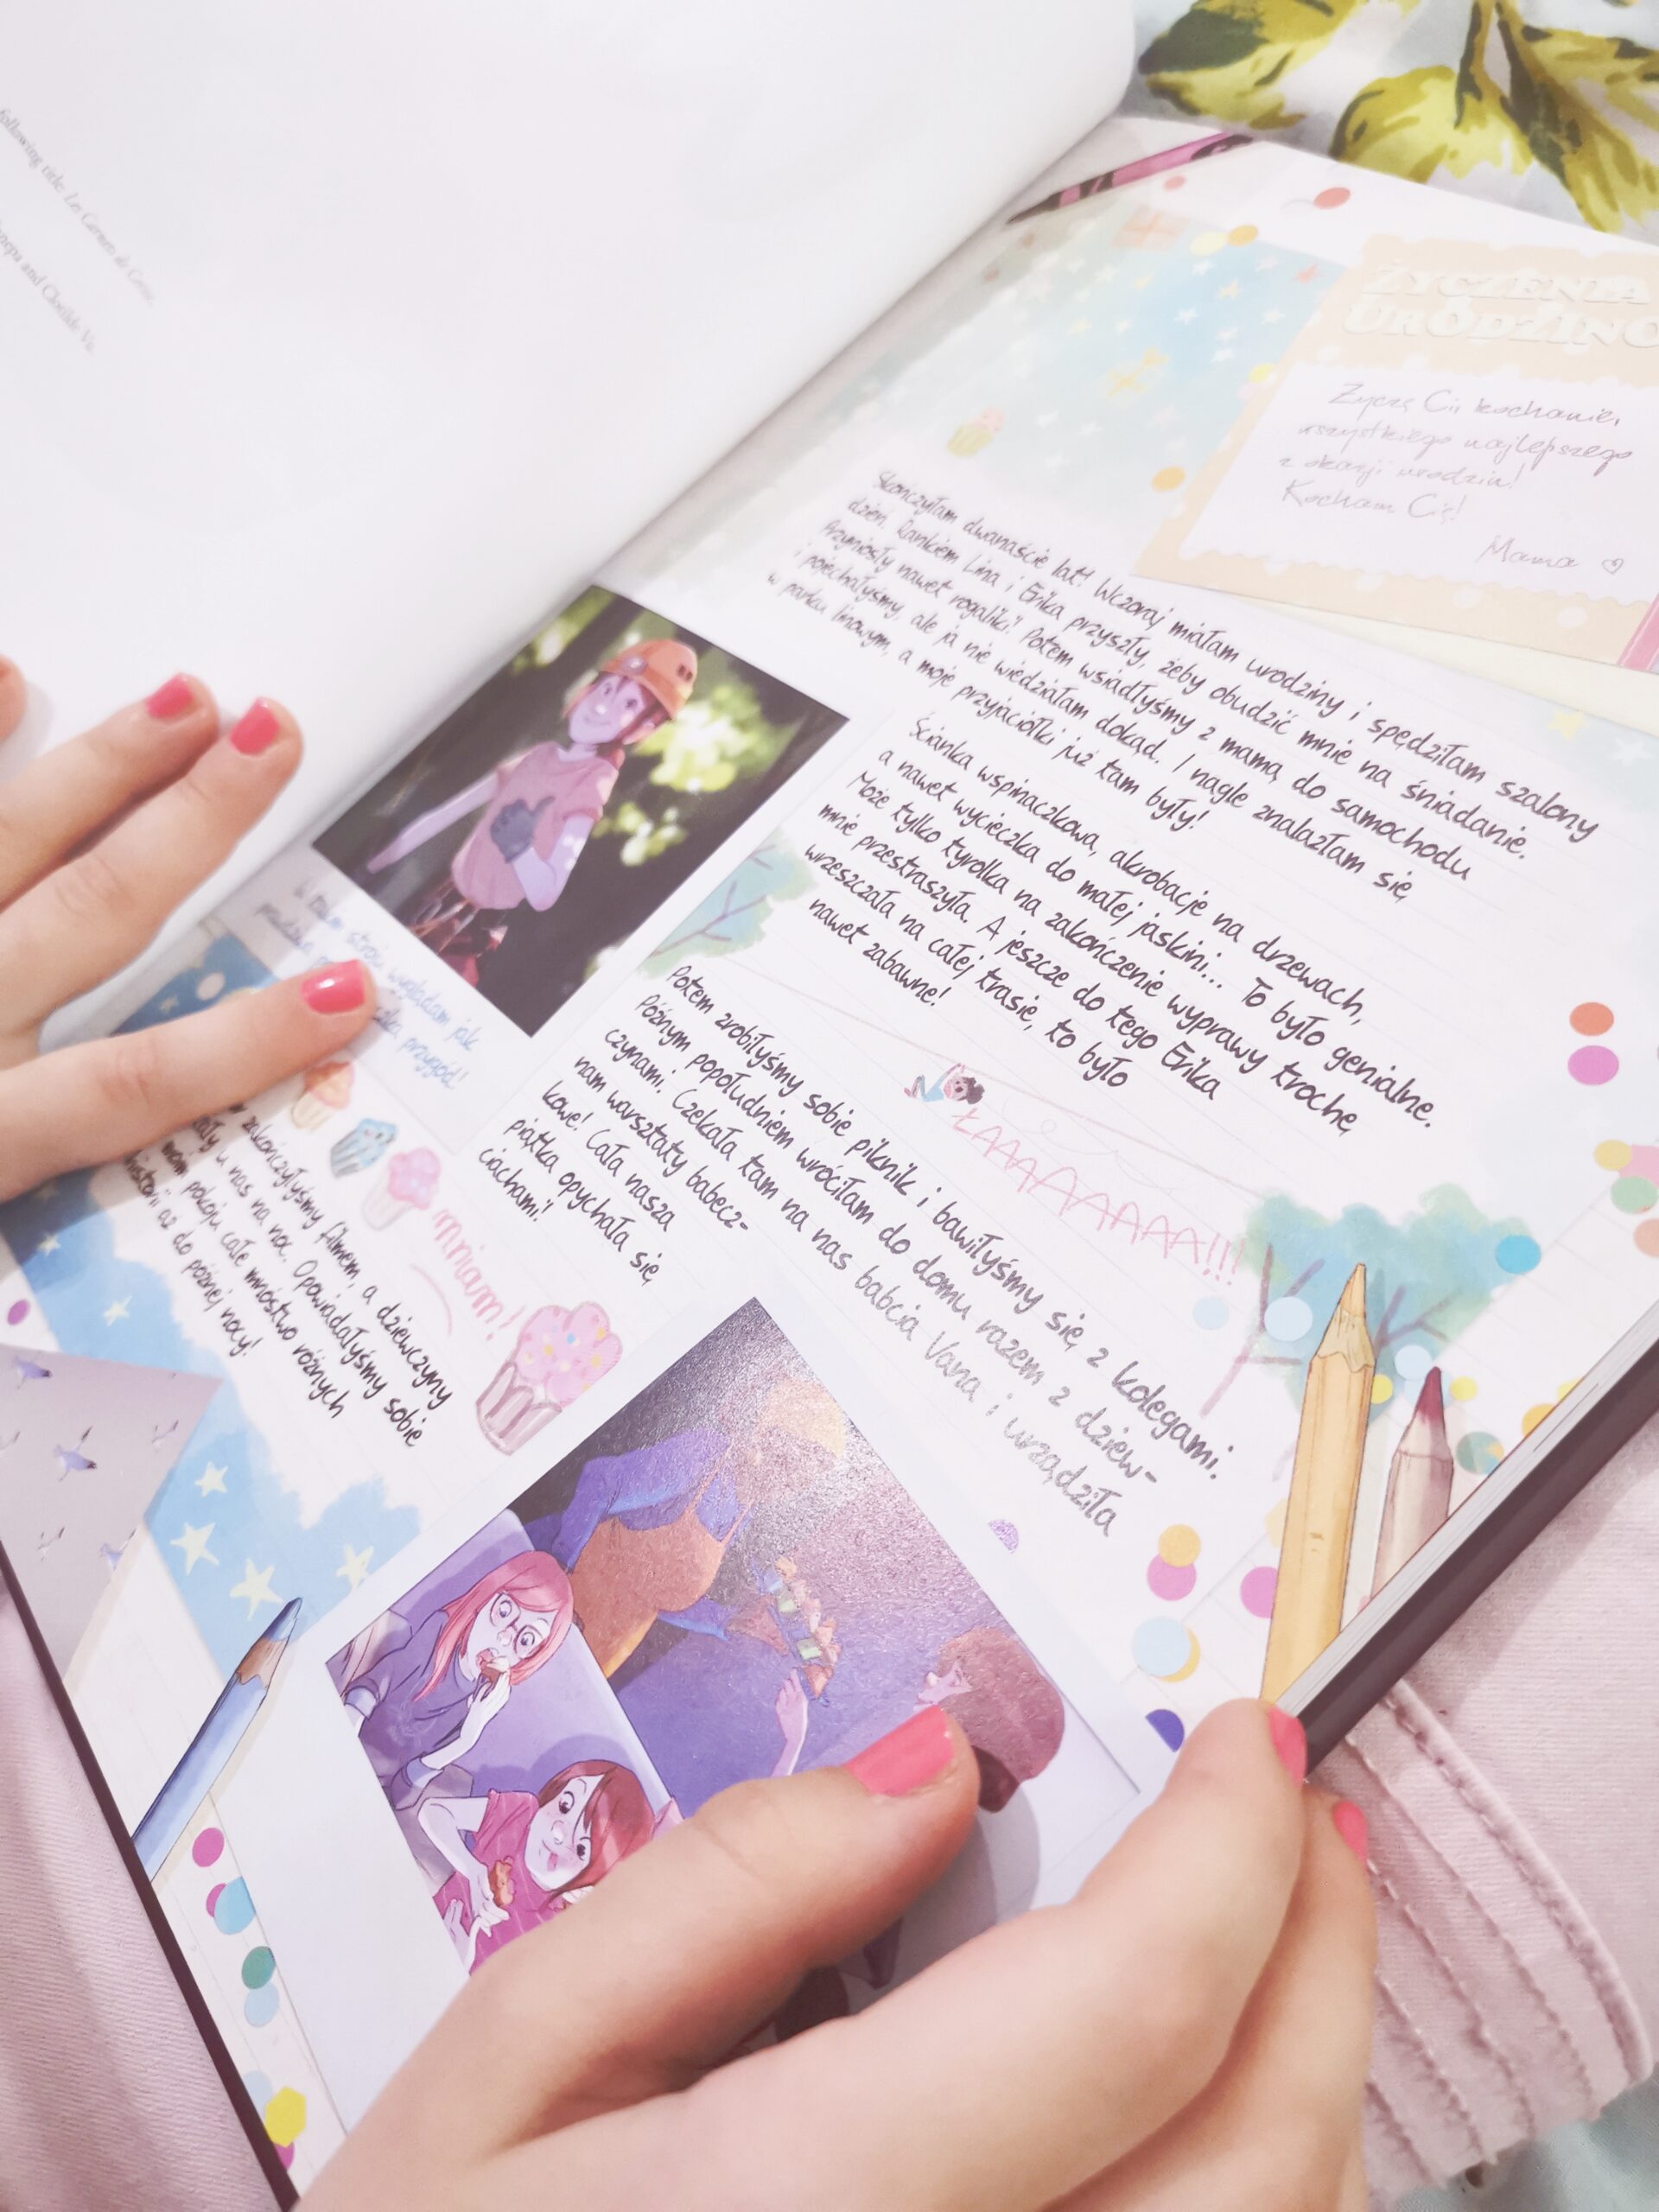 following title: Les Carnets de Cerise
and Clotilde Vu.
ŻYCZENIA
URODZINO
Życzę Ci, kochanie,
wszystkiego najlepszego
z okazji urodzin!
Kocham Cię!
Mama
Skończyłam dwanaście lat! Wczoraj miałam urodziny i spędziłam szalony
dzień. Rankiem Lina i Erika przyszły, żeby obudzić mnie na śniadanie.
Przyniosły nawet rogaliki! Potem wsiadłyśmy z mamą do samochodu
i pojechałyśmy, ale ja nie wiedziałam dokąd. I nagle znalazłam się
w parku linowym, a moje przyjaciółki już tam były!
Ścianka wspinaczkowa, akrobacje na drzewach,
a nawet wycieczka do małej jaskini... To było genialne.
Może tylko tyrolka na zakończenie wyprawy trochę
mnie przestraszyła. A jeszcze do tego Erika
wrzeszczała na całej trasie, to było
nawet zabawne!
ŁAAAAAAAAA!!!
W tym stroju wyglądam jak
przygód!
Potem zrobiłyśmy sobie piknik i bawiłyśmy się z kolegami.
Późnym popołudniem wróciłam do domu razem z dziew-
czynami. Czekała tam na nas babcia Vana i urządziła
nam warsztaty babecz-
kowe! Cała nasza
piątka opychała się
ciachami!
mniam!
zakończyłyśmy filmem, a dziewczyny
u nas na noc. Opowiadałyśmy sobie
moim pokoju całe mnóstwo różnych
historii aż do późnej nocy!